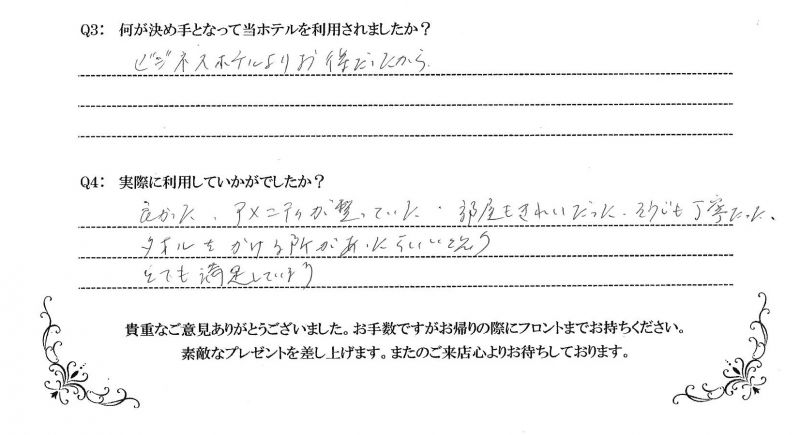 Q3: 何が決め手となって当ホテルを利用されましたか？
ビジネスホテルよりお得だったから.
Q4: 実際に利用していかがでしたか？
良かった、アメニティが整っていた・部屋もきれいだった、そうじも丁寧だった、
タオルをかける所があったらいいと思う
とても満足しています
貴重なご意見ありがとうございました。お手数ですがお帰りの際にフロントまでお持ちください。
素敵なプレゼントを差し上げます。またのご来店心よりお待ちしております。